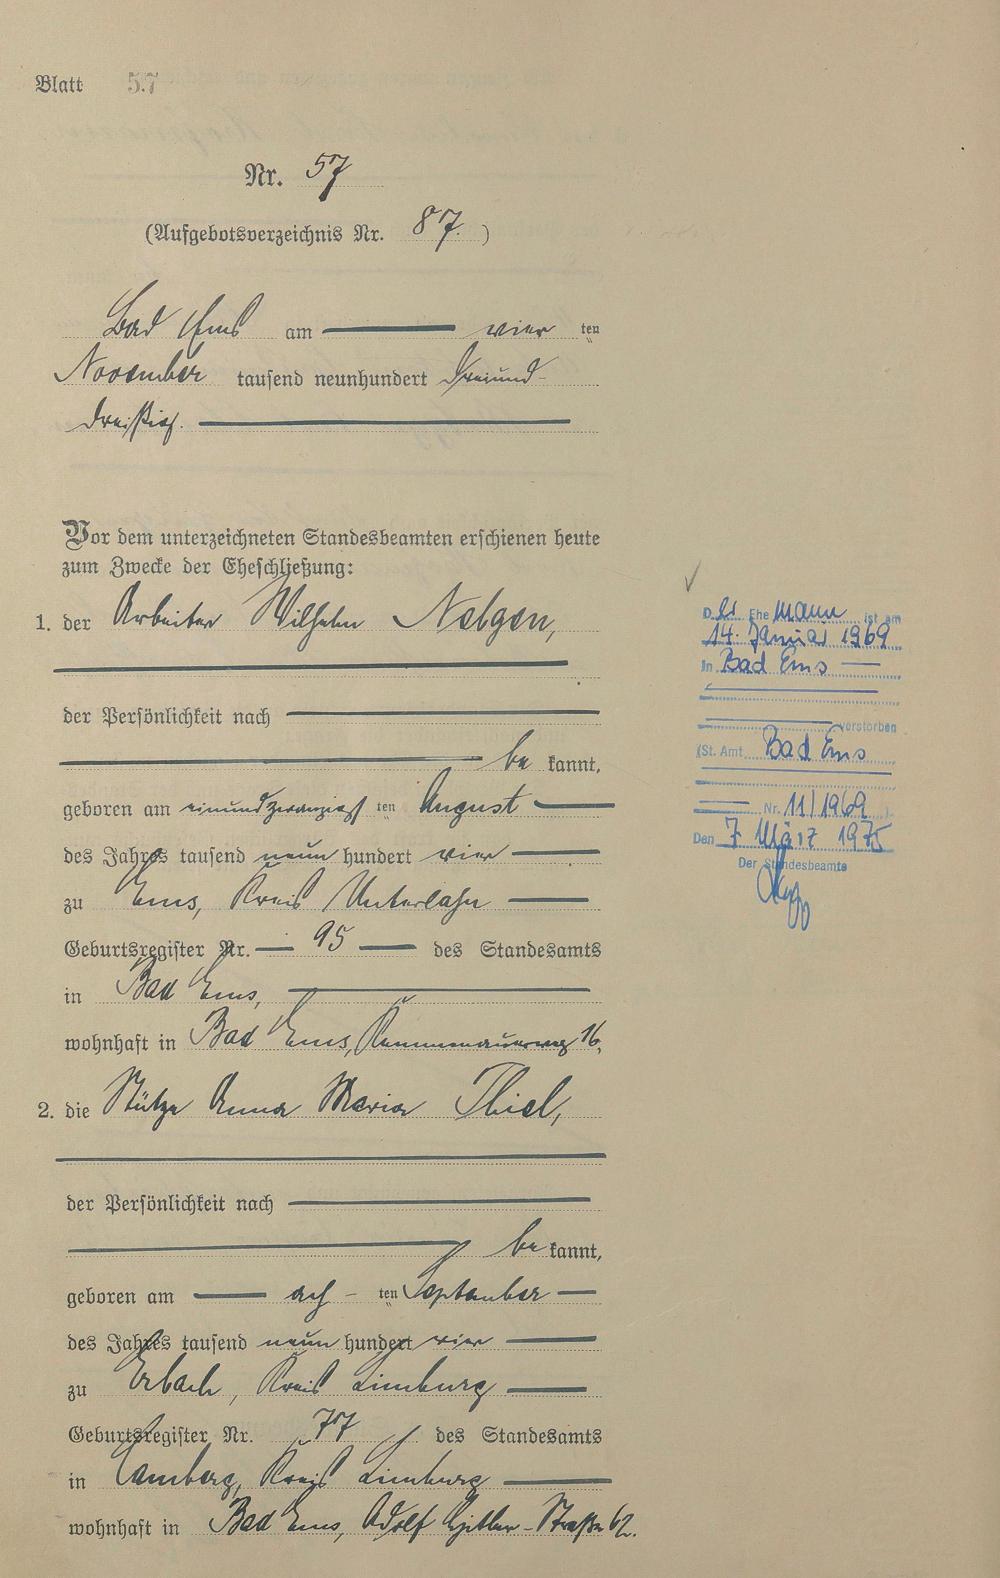 Blatt 57
Nr. 57
(Aufgebotsverzeichnis Nr. 87.)
Bad Ems am vier ten
November tausend neunhundert dreiund-
dreißig.
Vor dem unterzeichneten Standesbeamten erschienen heute
zum Zwecke der Eheschließung:
1. der Arbeiter Wilhelm Nelgen,
der Persönlichkeit nach
be kannt,
geboren am einundzwanzigs ten August
des Jahres tausend neun hundert vier
zu Ems, Kreis Unterlahn
Geburtsregister Nr. 95 des Standesamts
in Bad Ems,
wohnhaft in Bad Ems, 16,
2. die Stütze Anna Maria Thiel,
der Persönlichkeit nach
be kannt,
geboren am ach- ten September
des Jahres tausend neun hundert vier
zu Erbach, Kreis Limburg
Geburtsregister Nr. 77 des Standesamts
in Camberg, Kreis Limburg
wohnhaft in Bad Ems, Adolf Hitler-Straße 62.
Der Ehemann ist am
14. Januar 1969
in Bad Ems
verstorben
(St. Amt Bad Ems
Nr. 11/1969 )
Den 7. März 1975
Der Standesbeamte